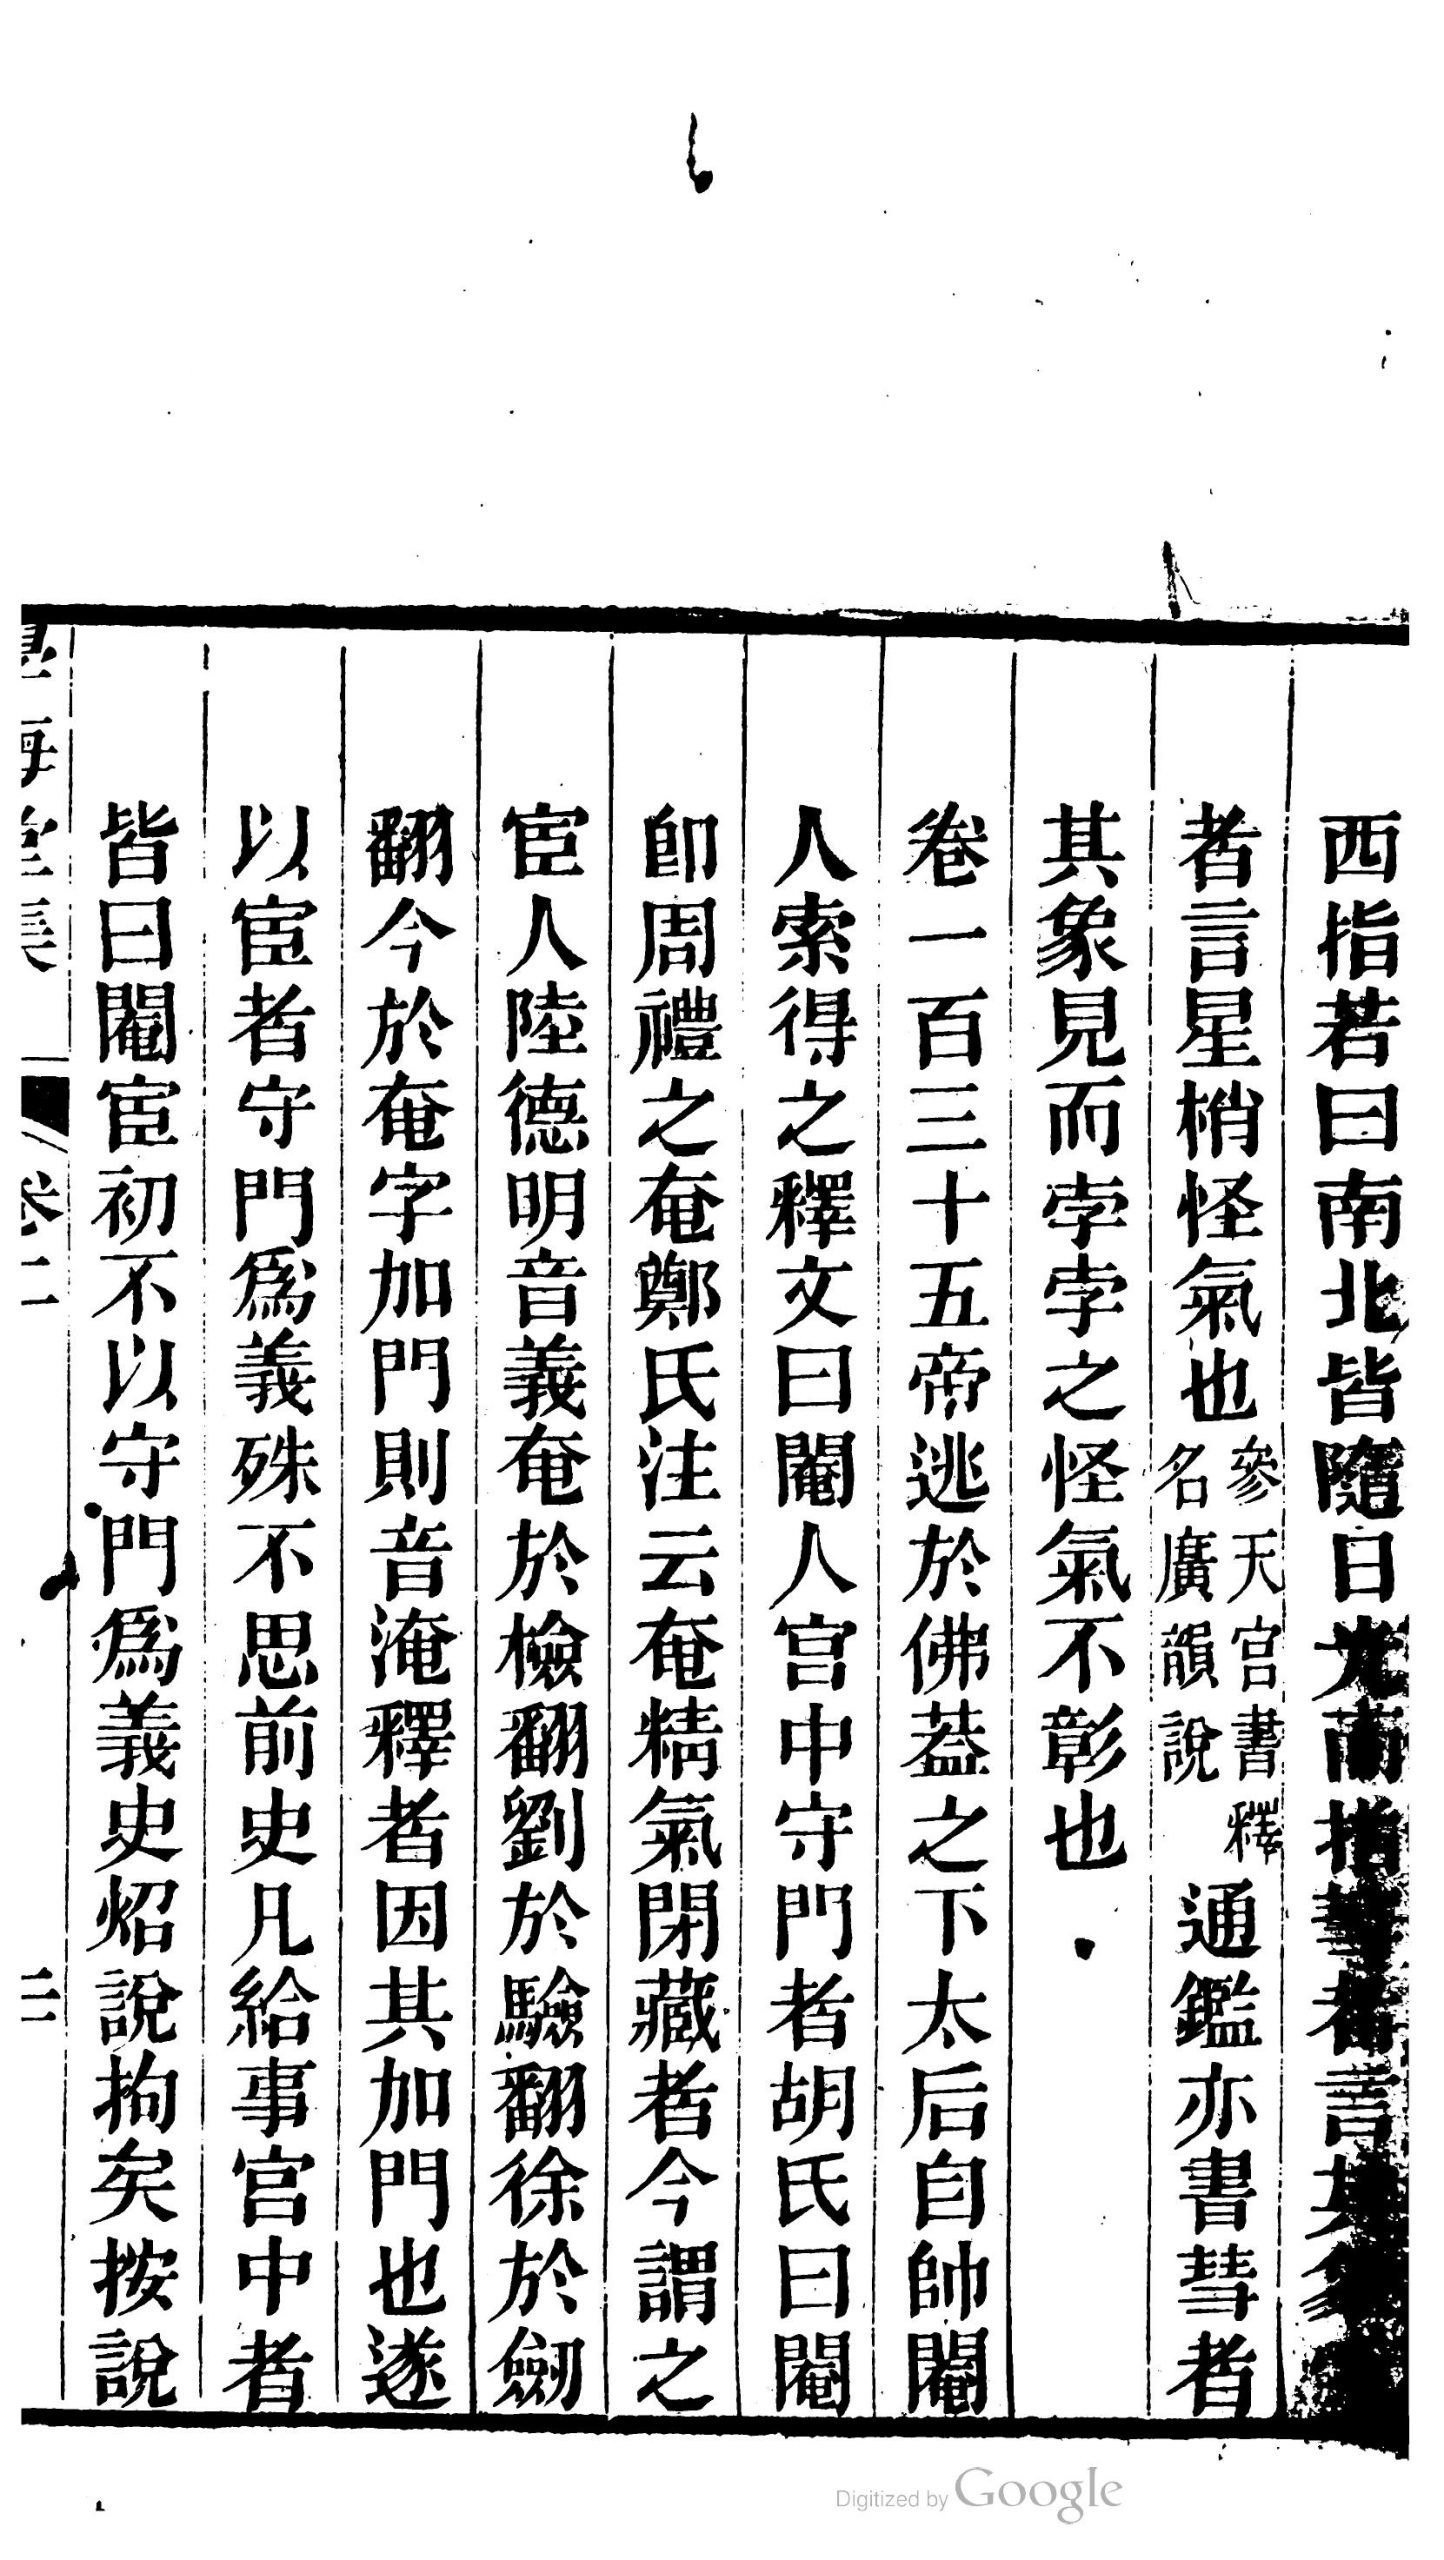 西指若曰南北皆隨日光而指孛者言其象
者言星梢怪氣也參天官書釋名廣韻說通鑑亦書彗者
其象見而孛孛之怪氣不彰也
卷一百三十五帝逃於佛葢之下太后自帥閹
人索得之釋文曰閹人宫中守門者胡氏曰閹
卽周禮之奄鄭氏注云奄精氣閉藏者今謂之
宦人陸德明音義奄於檢翻劉於驗翻徐於劒
翻今於奄字加門則音淹釋者因其加門也遂
以宦者守門爲義殊不思前史凡給事宫中者
皆曰閹宦初不以守門爲義史炤說拘矣按說
學海堂集 卷二 三
Digitized by Google